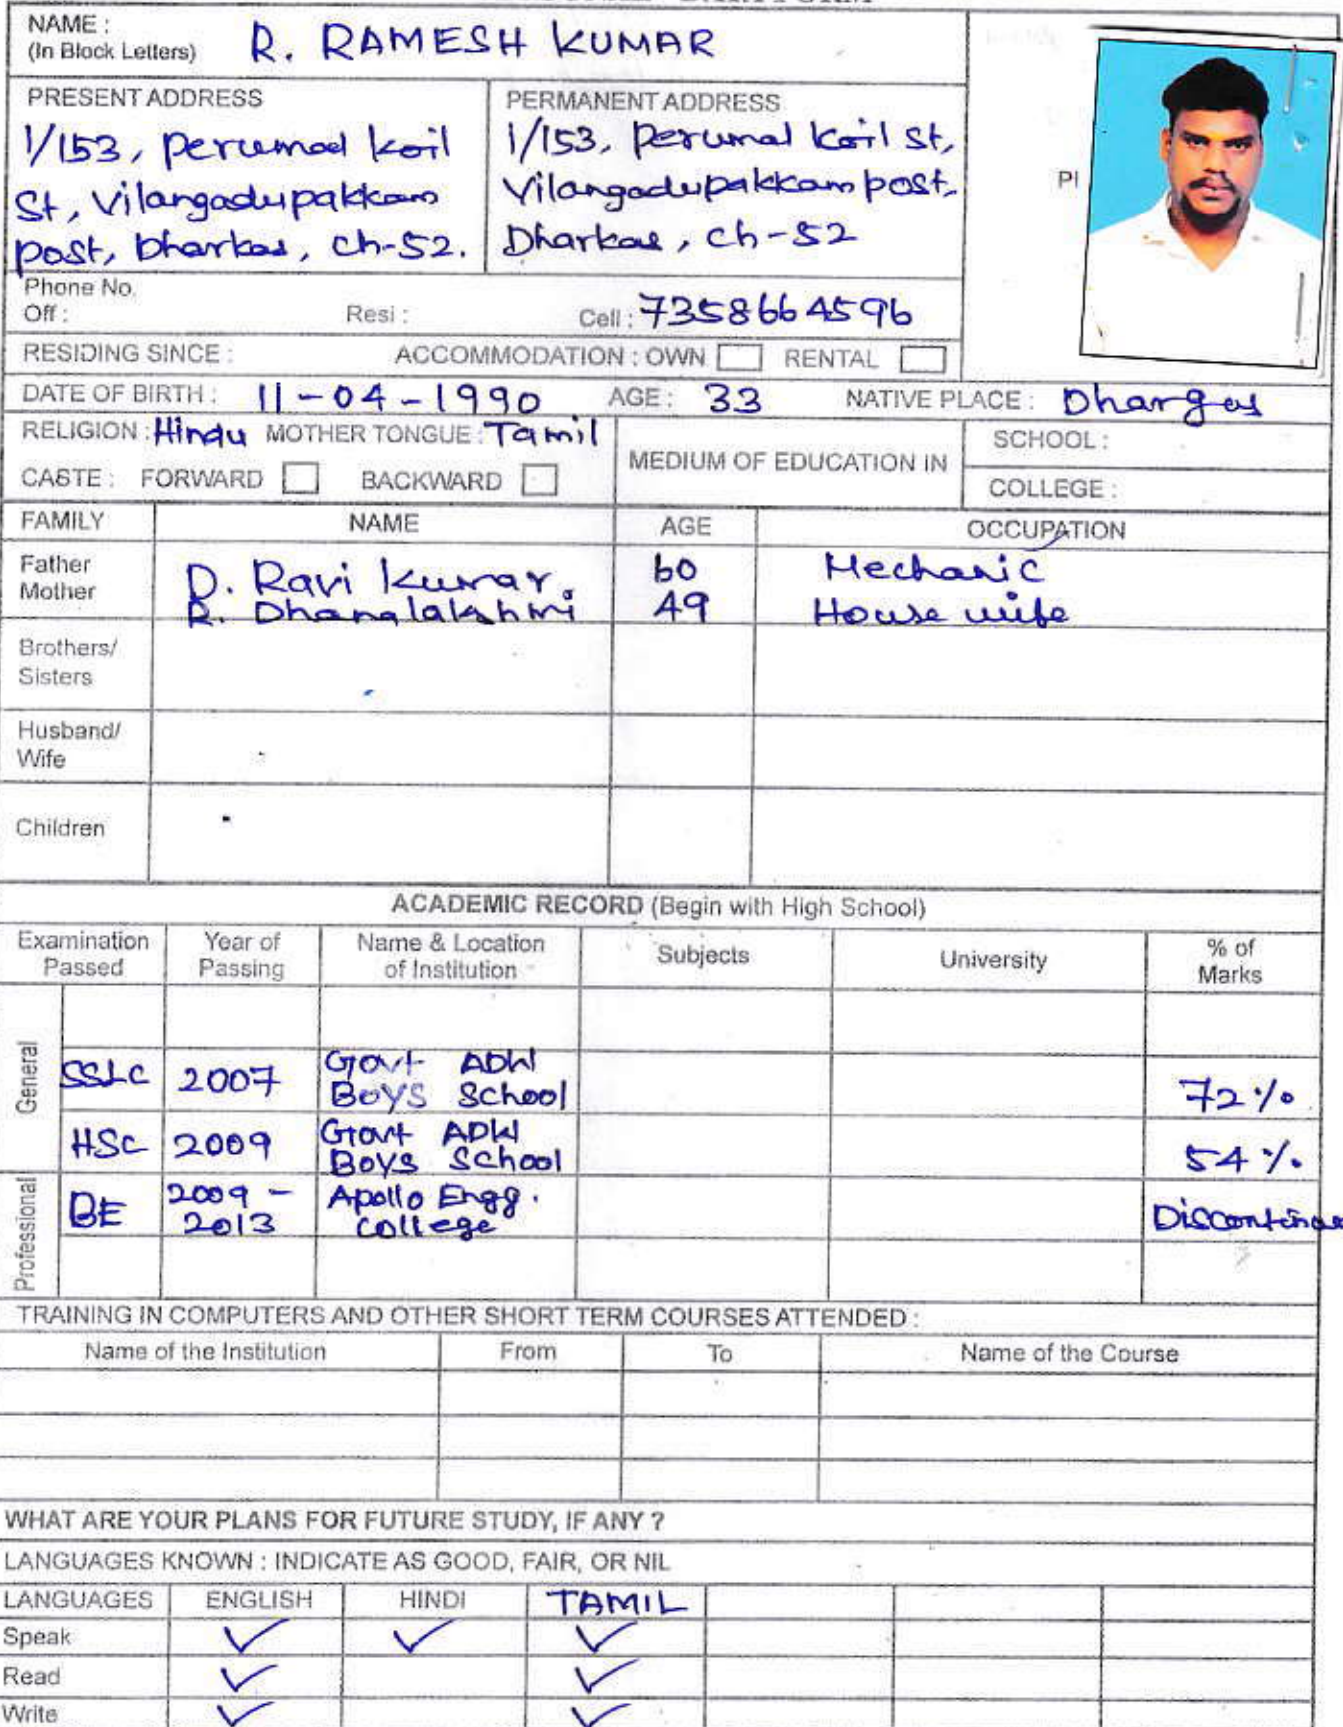 NAME :
(In Block Letters) R. RAMESH KUMAR
PRESENT ADDRESS
1/153, perumal koil
St, Vilangadupakkam
post, Dharkas, ch-52.
PERMANENT ADDRESS
1/153, perumal koil st,
Vilangadupakkam post,
Dharkas, ch-52
PI
Phone No.
Off : Resi : Cell : 7358664596
RESIDING SINCE : ACCOMMODATION : OWN RENTAL
DATE OF BIRTH : 11-04-1990 AGE : 33 NATIVE PLACE : Dhargas
RELIGION : Hindu MOTHER TONGUE : Tamil
CASTE : FORWARD BACKWARD
MEDIUM OF EDUCATION IN
SCHOOL :
COLLEGE :
FAMILY NAME AGE OCCUPATION
Father D. Ravi kumar. 60 Mechanic
Mother R. Dhanalakshmi 49 House wife
Brothers/
Sisters
Husband/
Wife
Children
ACADEMIC RECORD (Begin with High School)
Examination
Passed
Year of
Passing
Name & Location
of Institution
Subjects
University
% of
Marks
General
SSLC 2007 Govt ADW
Boys School
72%
HSC 2009 Govt ADW
Boys School
54%
Professional
BE 2009 -
2013
Apollo Engg.
college
Discontinue
TRAINING IN COMPUTERS AND OTHER SHORT TERM COURSES ATTENDED :
Name of the Institution From To Name of the Course
WHAT ARE YOUR PLANS FOR FUTURE STUDY, IF ANY ?
LANGUAGES KNOWN : INDICATE AS GOOD, FAIR, OR NIL
LANGUAGES ENGLISH HINDI TAMIL
Speak ✓ ✓ ✓
Read ✓ ✓
Write ✓ ✓